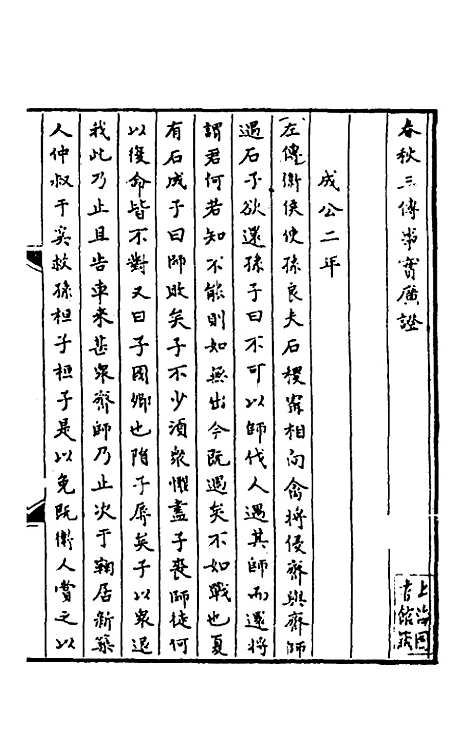 春秋三傳事實廣證
上海圖
書館藏
成公二年
左傳衞侯使孫良夫石稷甯相向禽將侵齊與齊師
遇石子欲還孫子曰不可以師伐人遇其師而還將
謂君何若知不能則如無出今既遇矣不如戰也夏
有石成子曰師敗矣子不少須衆懼盡子喪師徒何
以復命皆不對又曰子國卿也隕子辱矣子以衆退
我此乃止且告車來甚衆齊師乃止次于鞫居新築
人仲叔于奚救孫桓子桓子是以免既衞人賞之以